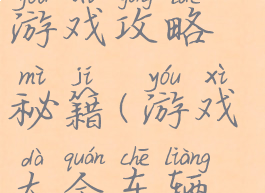 游戏攻略
mì jí yóu xì
秘籍(游戏
dà quán chē liàng
大全车辆